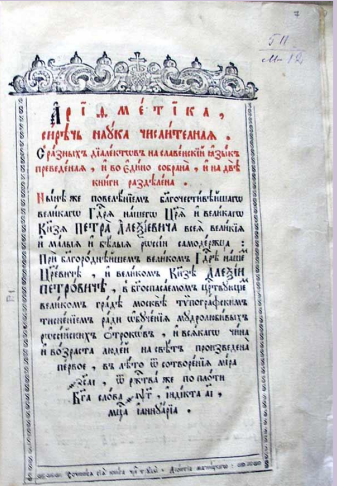 511
М 12
Арїѳметїка,
сирѣчь наука числителная.
С разныхъ дїалектовъ на славенскїй ꙗзыкъ
преведеная, и во едино собрана, и на двѣ
книги раздѣлена.
Нынѣ же повелѣнїемъ благочестивѣйшагѡ
великагѡ Гдⷭ҇рѧ нашегѡ Цр҃ѧ и великагѡ
Кнѧзѧ ПЕТРА АЛЕѮїЕВИЧА всеѧ великїѧ
и малыѧ и бѣлыѧ рѡссїи самодержца:
При благороднѣйшемъ великомъ Гдⷭ҇рѣ нашемъ
Цр҃евичѣ, и великомъ Кнѧзѣ АЛЕѮїИ
ПЕТРОВИЧѢ, в бг҃оспасаемомъ црⷭ҇твующемъ
великомъ градѣ москвѣ тѵпографскимъ
тисненїемъ ради ѡбученїѧ мудролюбивыхъ
рѡссїйскихъ ѻтрокѡвъ, и всѧкагѡ чина
и возраста людей на свѣтъ произведена
первое, въ лѣто ѿ сотворенїѧ мїра
҂зсаі, ѿ ржⷭ҇тва же по плоти
Бг҃а слова ҂аѱг, індїкта аі,
мцⷭ҇а іаннуарїа.
Сочинисѧ сїѧ книга